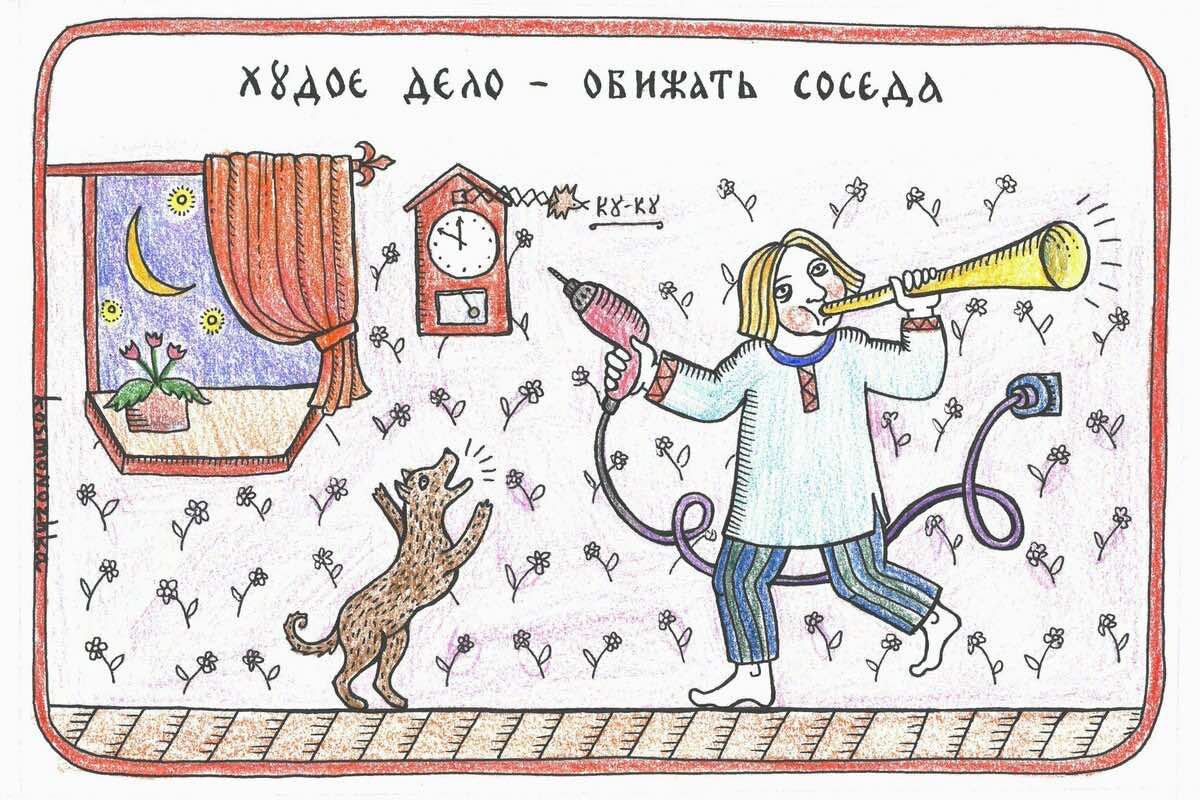 ХУДОЕ ДЕЛО - ОБИЖАТЬ СОСЕДА
КУ-КУ